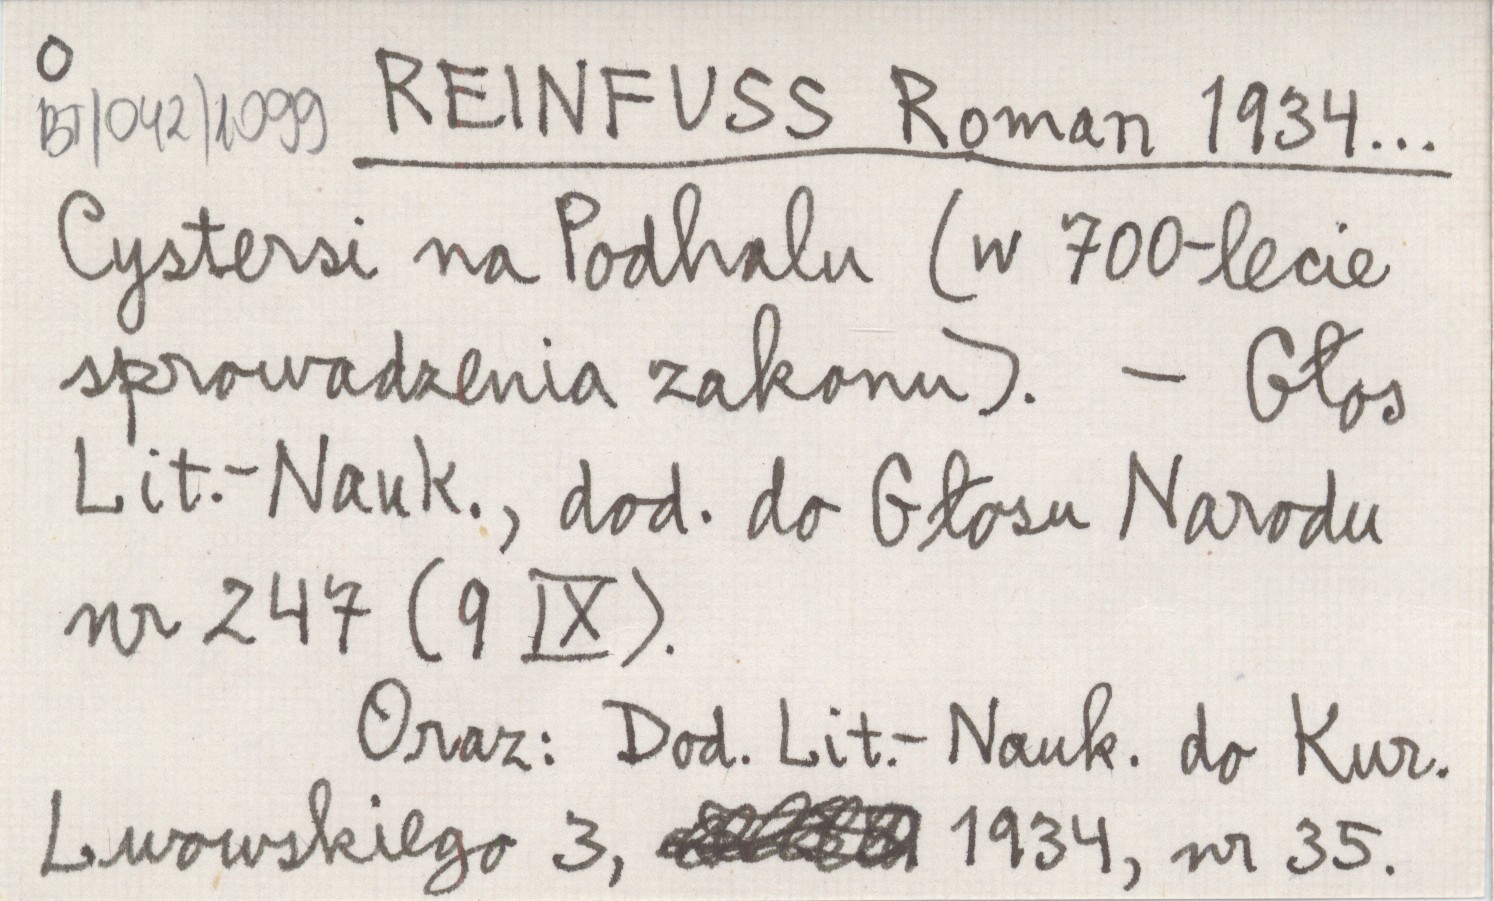 O
BT/042/1099 REINFUSS Roman 1934...
Cystersi na Podhalu (w 700-lecie
sprowadzenia zakonu). — Głos
Lit.-Nauk., dod. do Głosu Narodu
nr 247 (9 IX).
Oraz: Dod. Lit.-Nauk. do Kur.
Lwowskiego 3, 1934, nr 35.